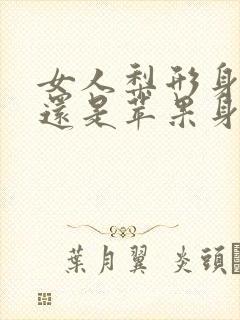 女人梨形身
還是苹果身
葉月翼 炎頭